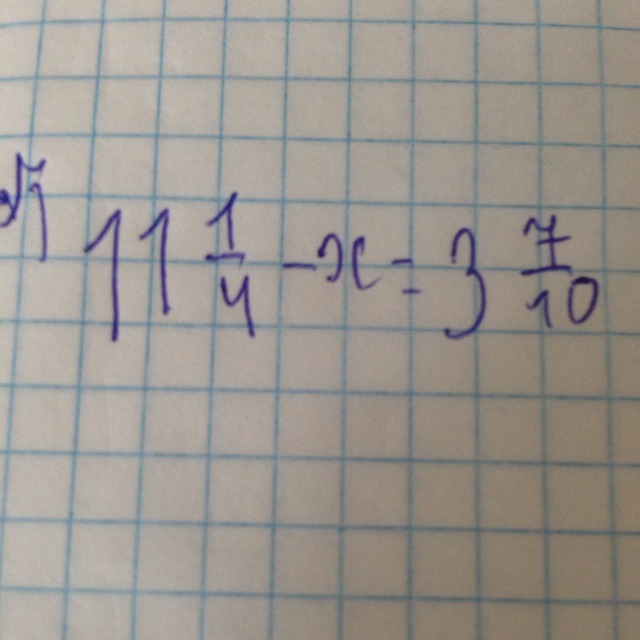 11 1/4 - x = 3 7/10